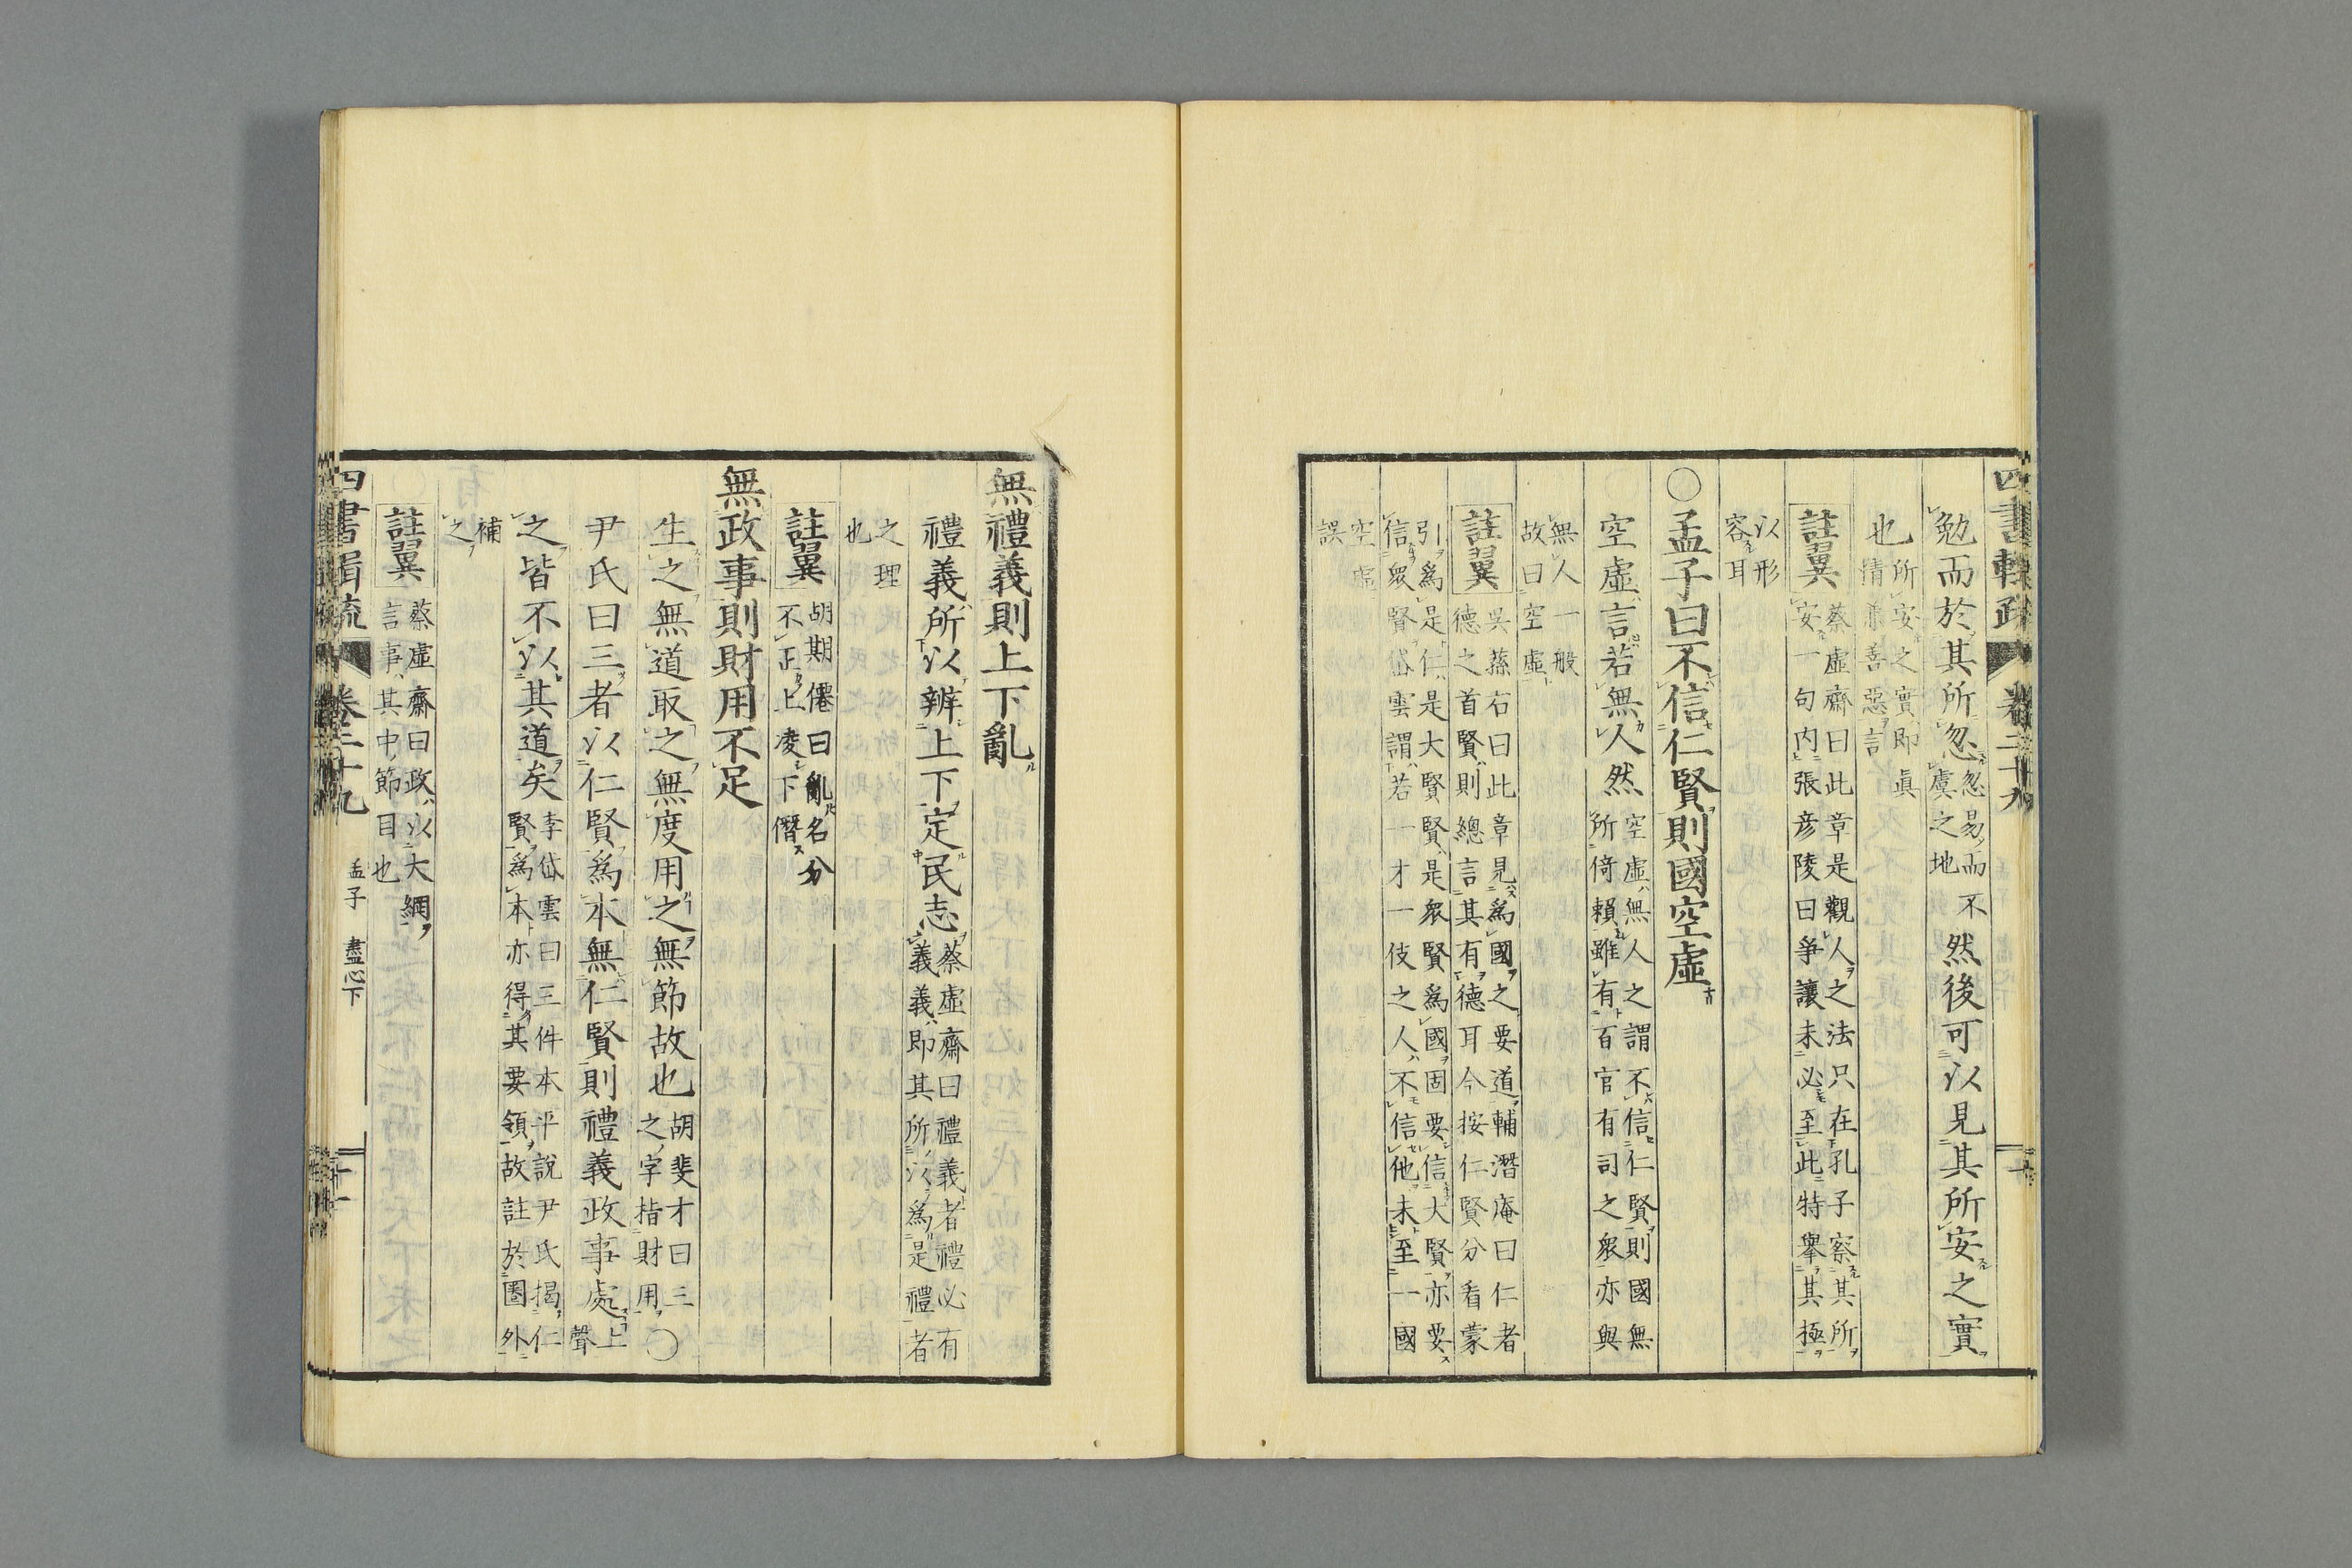 四書輯疏 卷二十九
勉而於其所忽忽易而不虞之地然後可以見其所安之實
也所安之實即眞情兼善惡言
註翼蔡虛齋曰此章是觀人之法只在孔子察其所安一句内張彦陵曰爭讓未必至此特擧其極
以形容耳
○孟子曰不信仁賢則國空虛
空虛言若無人然空虛無人之謂不信仁賢則國無所倚賴雖有百官有司之衆亦與
無人一般故曰空虛
註翼吳蓀右曰此章見爲國之要道輔潛庵曰仁者德之首賢則總言其有德耳今按仁賢分看蒙
引爲是仁是大賢賢是衆賢爲國固要信大賢亦要信衆賢岱雲謂若一才一伎之人不信他未至一國
空虛誤
無禮義則上下亂
禮義所以辨上下定民志蔡虛齋曰禮義者禮必有義義即其所以爲是禮者
之理也
註翼胡期僊曰亂名分不正上凌下僭
無政事則財用不足
生之無道取之無度用之無節故也胡斐才曰三之字指財用○
尹氏曰三者以仁賢爲本無仁賢則禮義政事處上聲
之皆不以其道矣李岱雲曰三件本平說尹氏揭仁賢爲本亦得其要領故註於圈外
補之
註翼蔡虛齋曰政以大綱言事其中節目也
四書輯疏 卷二十九 孟子 盡心下 十一